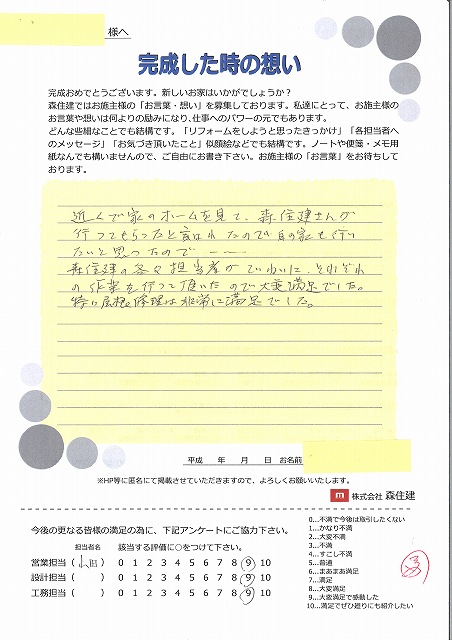 様へ
完成した時の想い
完成おめでとうございます。新しいお家はいかがでしょうか?
森住建ではお施主様の「お言葉・想い」を募集しております。私達にとって、お施主様の
お言葉や想いは何よりの励みになり、仕事へのパワーの元でもあります。
どんな些細なことでも結構です。「リフォームをしようと思ったきっかけ」「各担当者へ
のメッセージ」「お気づき頂いたこと」似顔絵などでも結構です。ノートや便箋・メモ用
紙なんでも構いませんので、ご自由にお書き下さい。お施主様の「お言葉」をお待ちして
おります。
近くで家のホームを見て、森住建さんが
行ってもらったと言われたので自の家も行い
たいと思ったので――
森住建の各々担当者がていねいに、それぞれ
の作業を行って頂いたので大変満足でした。
特に屋根修理は非常に満足でした。
平成 年 月 日 お名前
※HP等に匿名にて掲載させていただきますので、よろしくお願いいたします。
m 株式会社 森住建
今後の更なる皆様の満足の為に、下記アンケートにご協力下さい。
担当者名 該当する評価に○をつけて下さい。
営業担当 ( ) 0 1 2 3 4 5 6 7 8 9 10
設計担当 ( ) 0 1 2 3 4 5 6 7 8 9 10
工務担当 ( ) 0 1 2 3 4 5 6 7 8 9 10
0…不満で今後は取引したくない
1…かなり不満
2…大変不満
3…不満
4…すこし不満
5…普通
6…まあまあ満足
7…満足
8…大変満足
9…大変満足で感動した
10…満足でぜひ廻りにも紹介したい